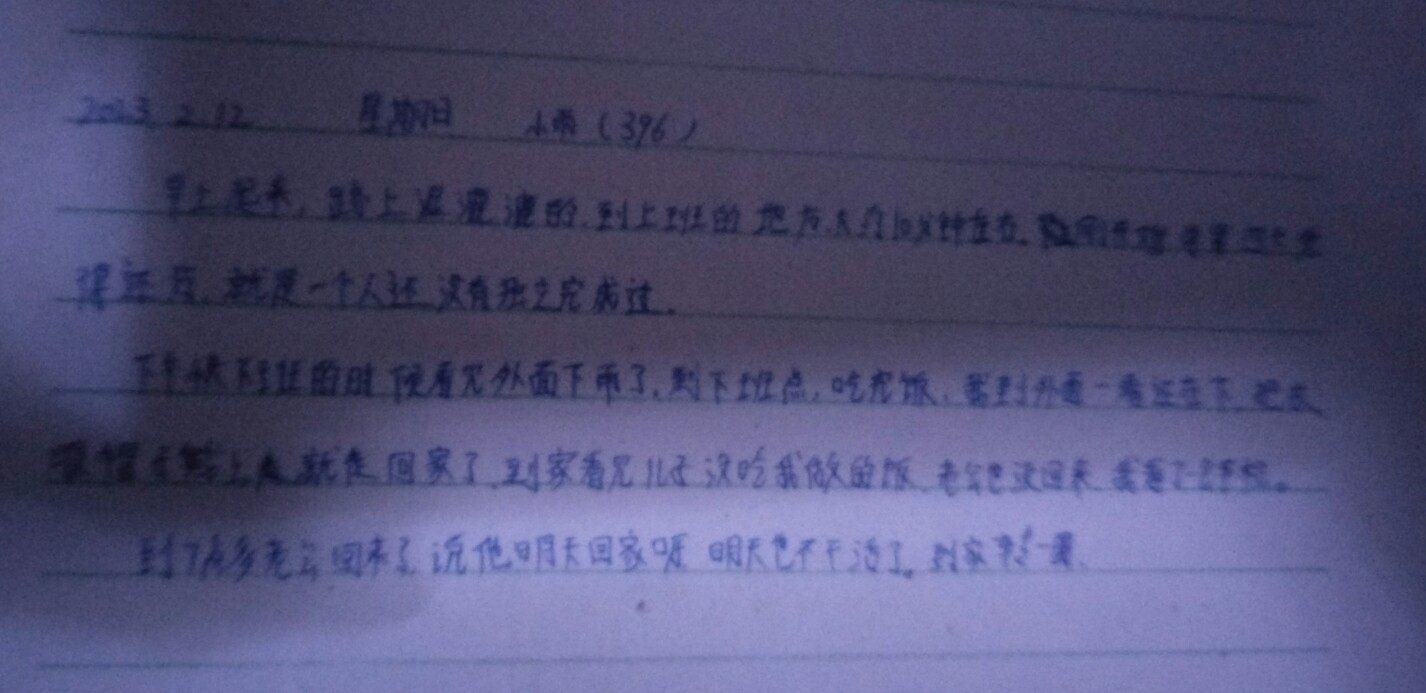 2023 2.12 星期日 小雨（396）
早上起来，路上湿漉漉的，到上班的地方，大约10分钟左右，
得还员，就是一个人还没有独立完成过。
下午快下班的时候看见外面下雨了，到下班点，吃完饭，到外面一看还在下，把衣
上来就走回家了，到家看见儿子没吃我做的饭，老公也没回来，我
到7点多老公回来了，说他明天回家呀，明天也不干活了，到家